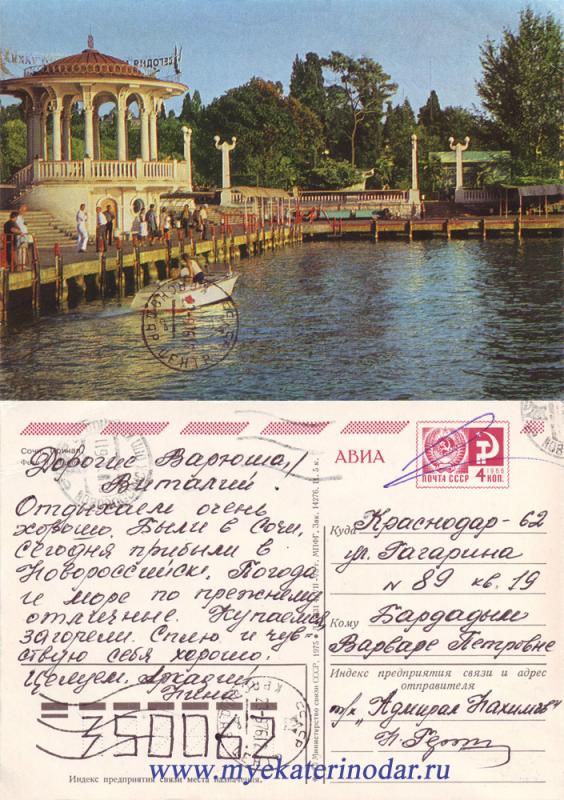 СЕГОДНЯ
КРАСНОДАР
ЦЕНТР
Сочи.
Дорогие Варюша,
Виталий!
Отдыхаем очень
хорошо. Были в Сочи,
сегодня прибыли в
Новороссийск. Погода
и море по прежнему
отличные. Купаемся
загорели. Сплю и чув-
ствую себя хорошо.
Целуем. Аркадий
Нина
350062
Индекс предприятия связи места назначения
Министерство связи СССР, 1975
МПФГ, Зак. 14276, ц. 5 к.
АВИА
ПОЧТА СССР
1966
4 КОП.
Куда Краснодар - 62
ул. Гагарина
N 89 кв. 19
Кому Бардадым
Варваре Петровне
Индекс предприятия связи и адрес
отправителя
т/х "Адмирал Нахимов"
СССР
www.myekaterinodar.ru